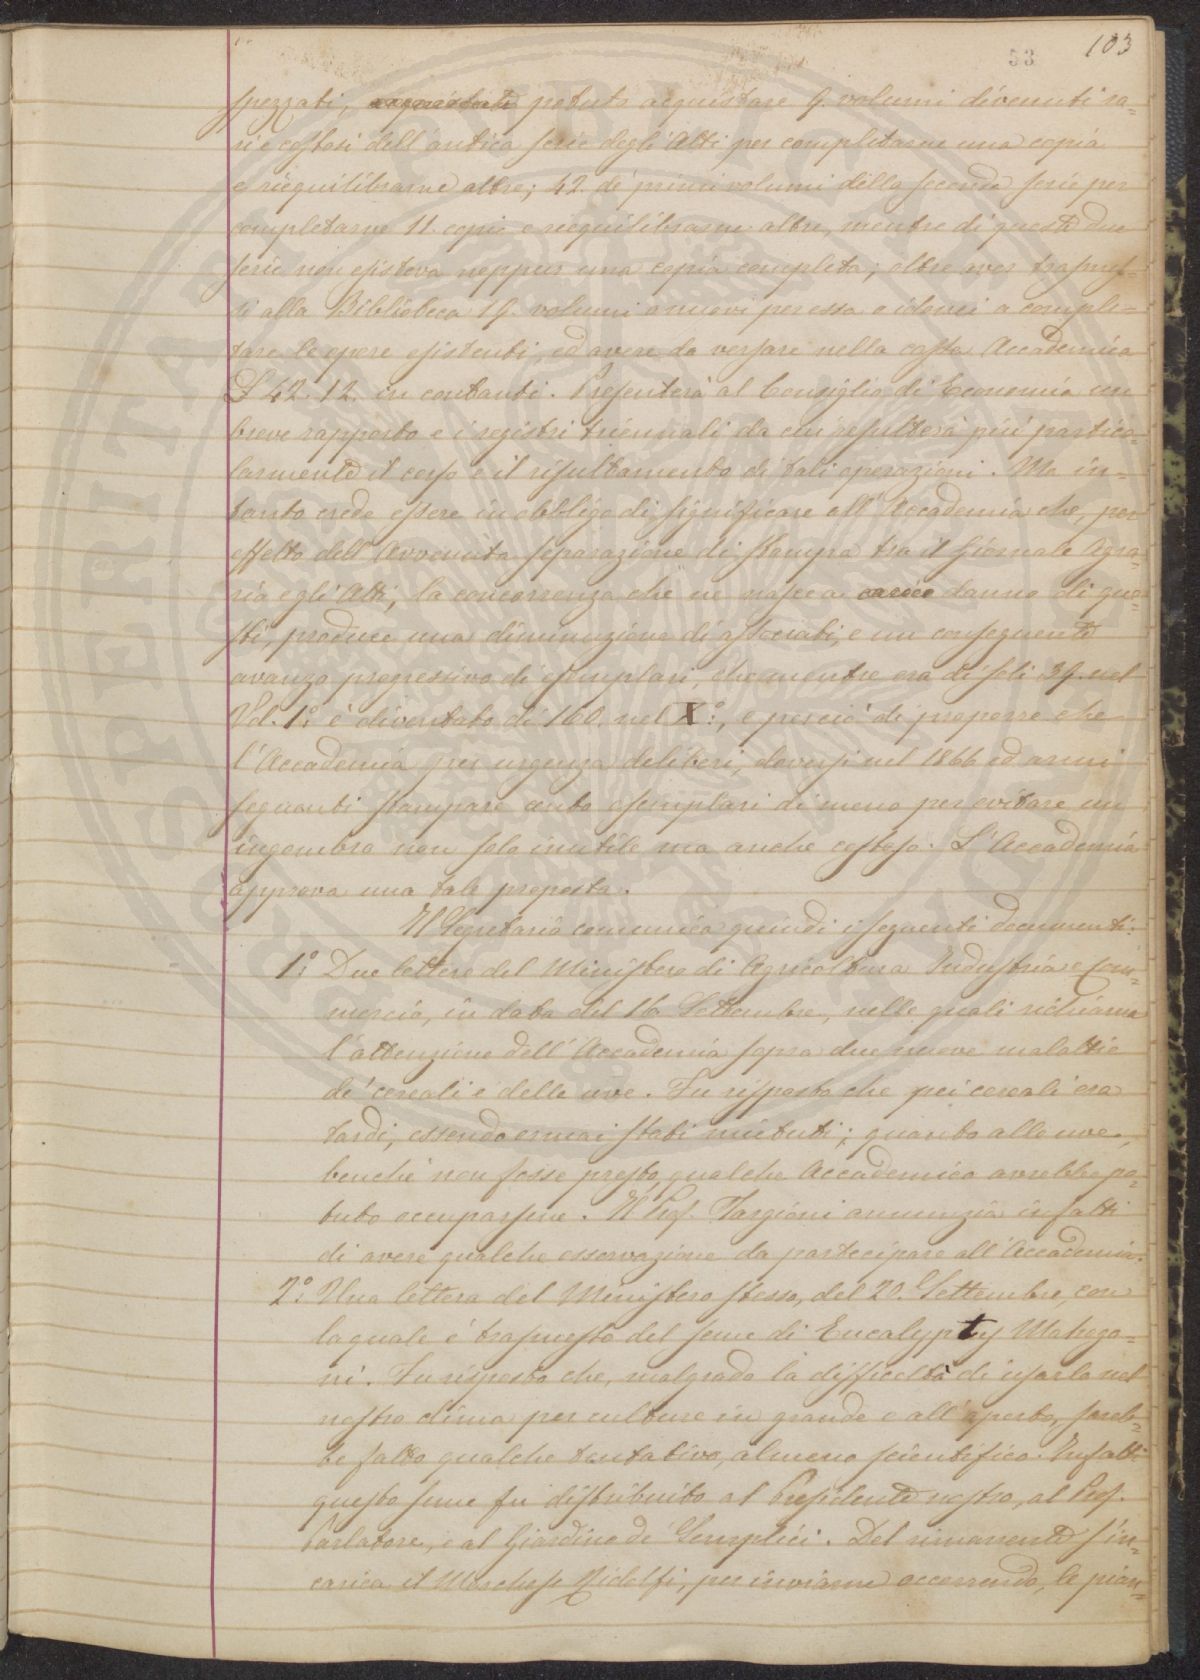 53 103
spezzati, potuto acquistare 9. volumi divenuti ra=
ri e costosi dell'antica serie degli Atti per completarne una copia
e riequilibrarne altre; 42. de' primi volumi della seconda serie per
completarne 11. copie e riequilibrarne altre, mentre di queste due
serie non esisteva neppur una copia completa; oltre aver trasmes=
si alla Biblioteca 19. volumi nuovi per essa e idonei a comple=
tare le opere esistenti, ed avere da versare nella cassa Accademica
L 42. 12. in contanti. Presenterà al Consiglio di Economia un
breve rapporto e i registri triennali da cui resulterà più partico=
larmente il corso e il risultamento di tali operazioni. Ma in=
tanto crede essere in obbligo di significare all'Accademia che, per
effetto dell'avvenuta separazione di stampa tra il Giornale Agra=
rio e gli Atti, la concorrenza che ne nasce a danno di que=
sti, produce una diminuzione di associati, e un conseguente
avanzo progressivo di esemplari, che mentre era di soli 39. nel
Vol. 1.° è diventato di 160. nel X.°, e perciò di proporre che
l'Accademia per urgenza deliberi, doversi nel 1866 ed anni
seguenti stampare cento esemplari di meno per evitare un
ingombro non solo inutile ma anche costoso. L'Accademia
approva una tale proposta.
Il Segretario comunica quindi i seguenti documenti:
1.° Due lettere del Ministero di Agricoltura Industria e Com=
mercio, in data del 16 Settembre, nelle quali richiama
l'attenzione dell'Accademia sopra due nuove malattie
de' cereali e delle uve. Fu risposto che pei cereali era
tardi, essendo ormai stati mietuti; quanto alle uve,
benchè non fosse presto, qualche Accademico avrebbe po=
tuto occuparsene. Il Prof. Targioni annunzia infatti
di avere qualche osservazione da partecipare all'Accademia.
2.° Una lettera del Ministero stesso, del 20. Settembre, con
la quale è trasmesso del seme di Eucalypty Mahogo=
ni. Fu risposto che, malgrado la difficoltà di usarlo nel
nostro clima per culture in grande e all'aperto, sareb=
be fatto qualche tentativo, almeno scientifico. Infatti
questo seme fu distribuito al Presidente nostro, al Prof.
Parlatore, e al Giardino de' Semplici. Del rimanente s'in=
carica il Marchese Ridolfi, per inviarne occorrendo, le pian=